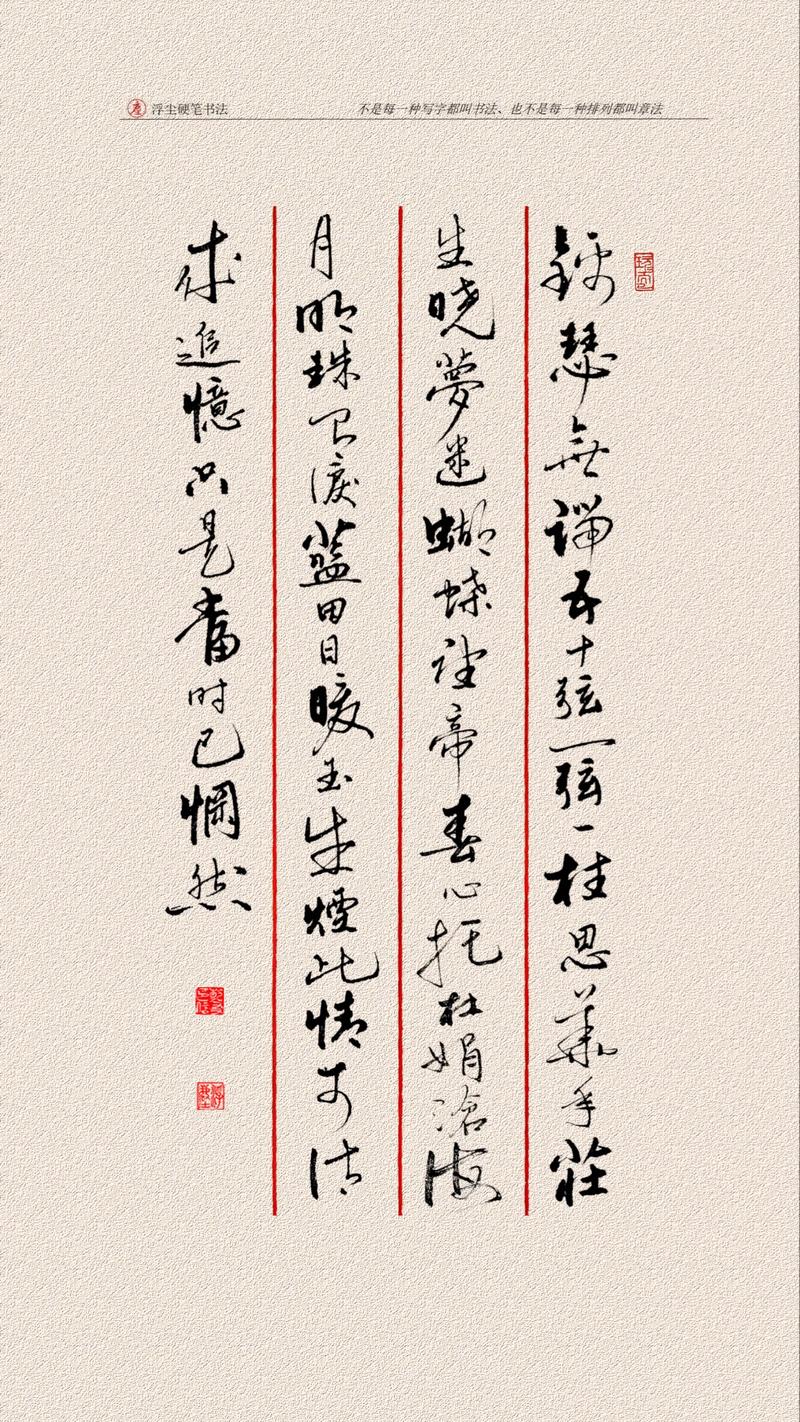 浮尘硬笔书法
不是每一种写字都叫书法、也不是每一种排列都叫章法
錦瑟無端五十弦一弦一柱思華年莊
生晓夢迷蝴蝶望帝春心托杜娟滄海
月明珠有淚藍田日暖玉生煙此情可待
成追憶只是當时已惘然